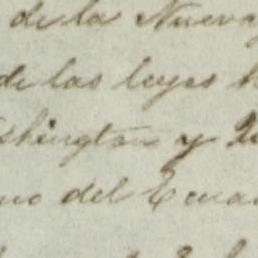 de la Nueva
de las leyes h
shington y Qu
no del Ecua